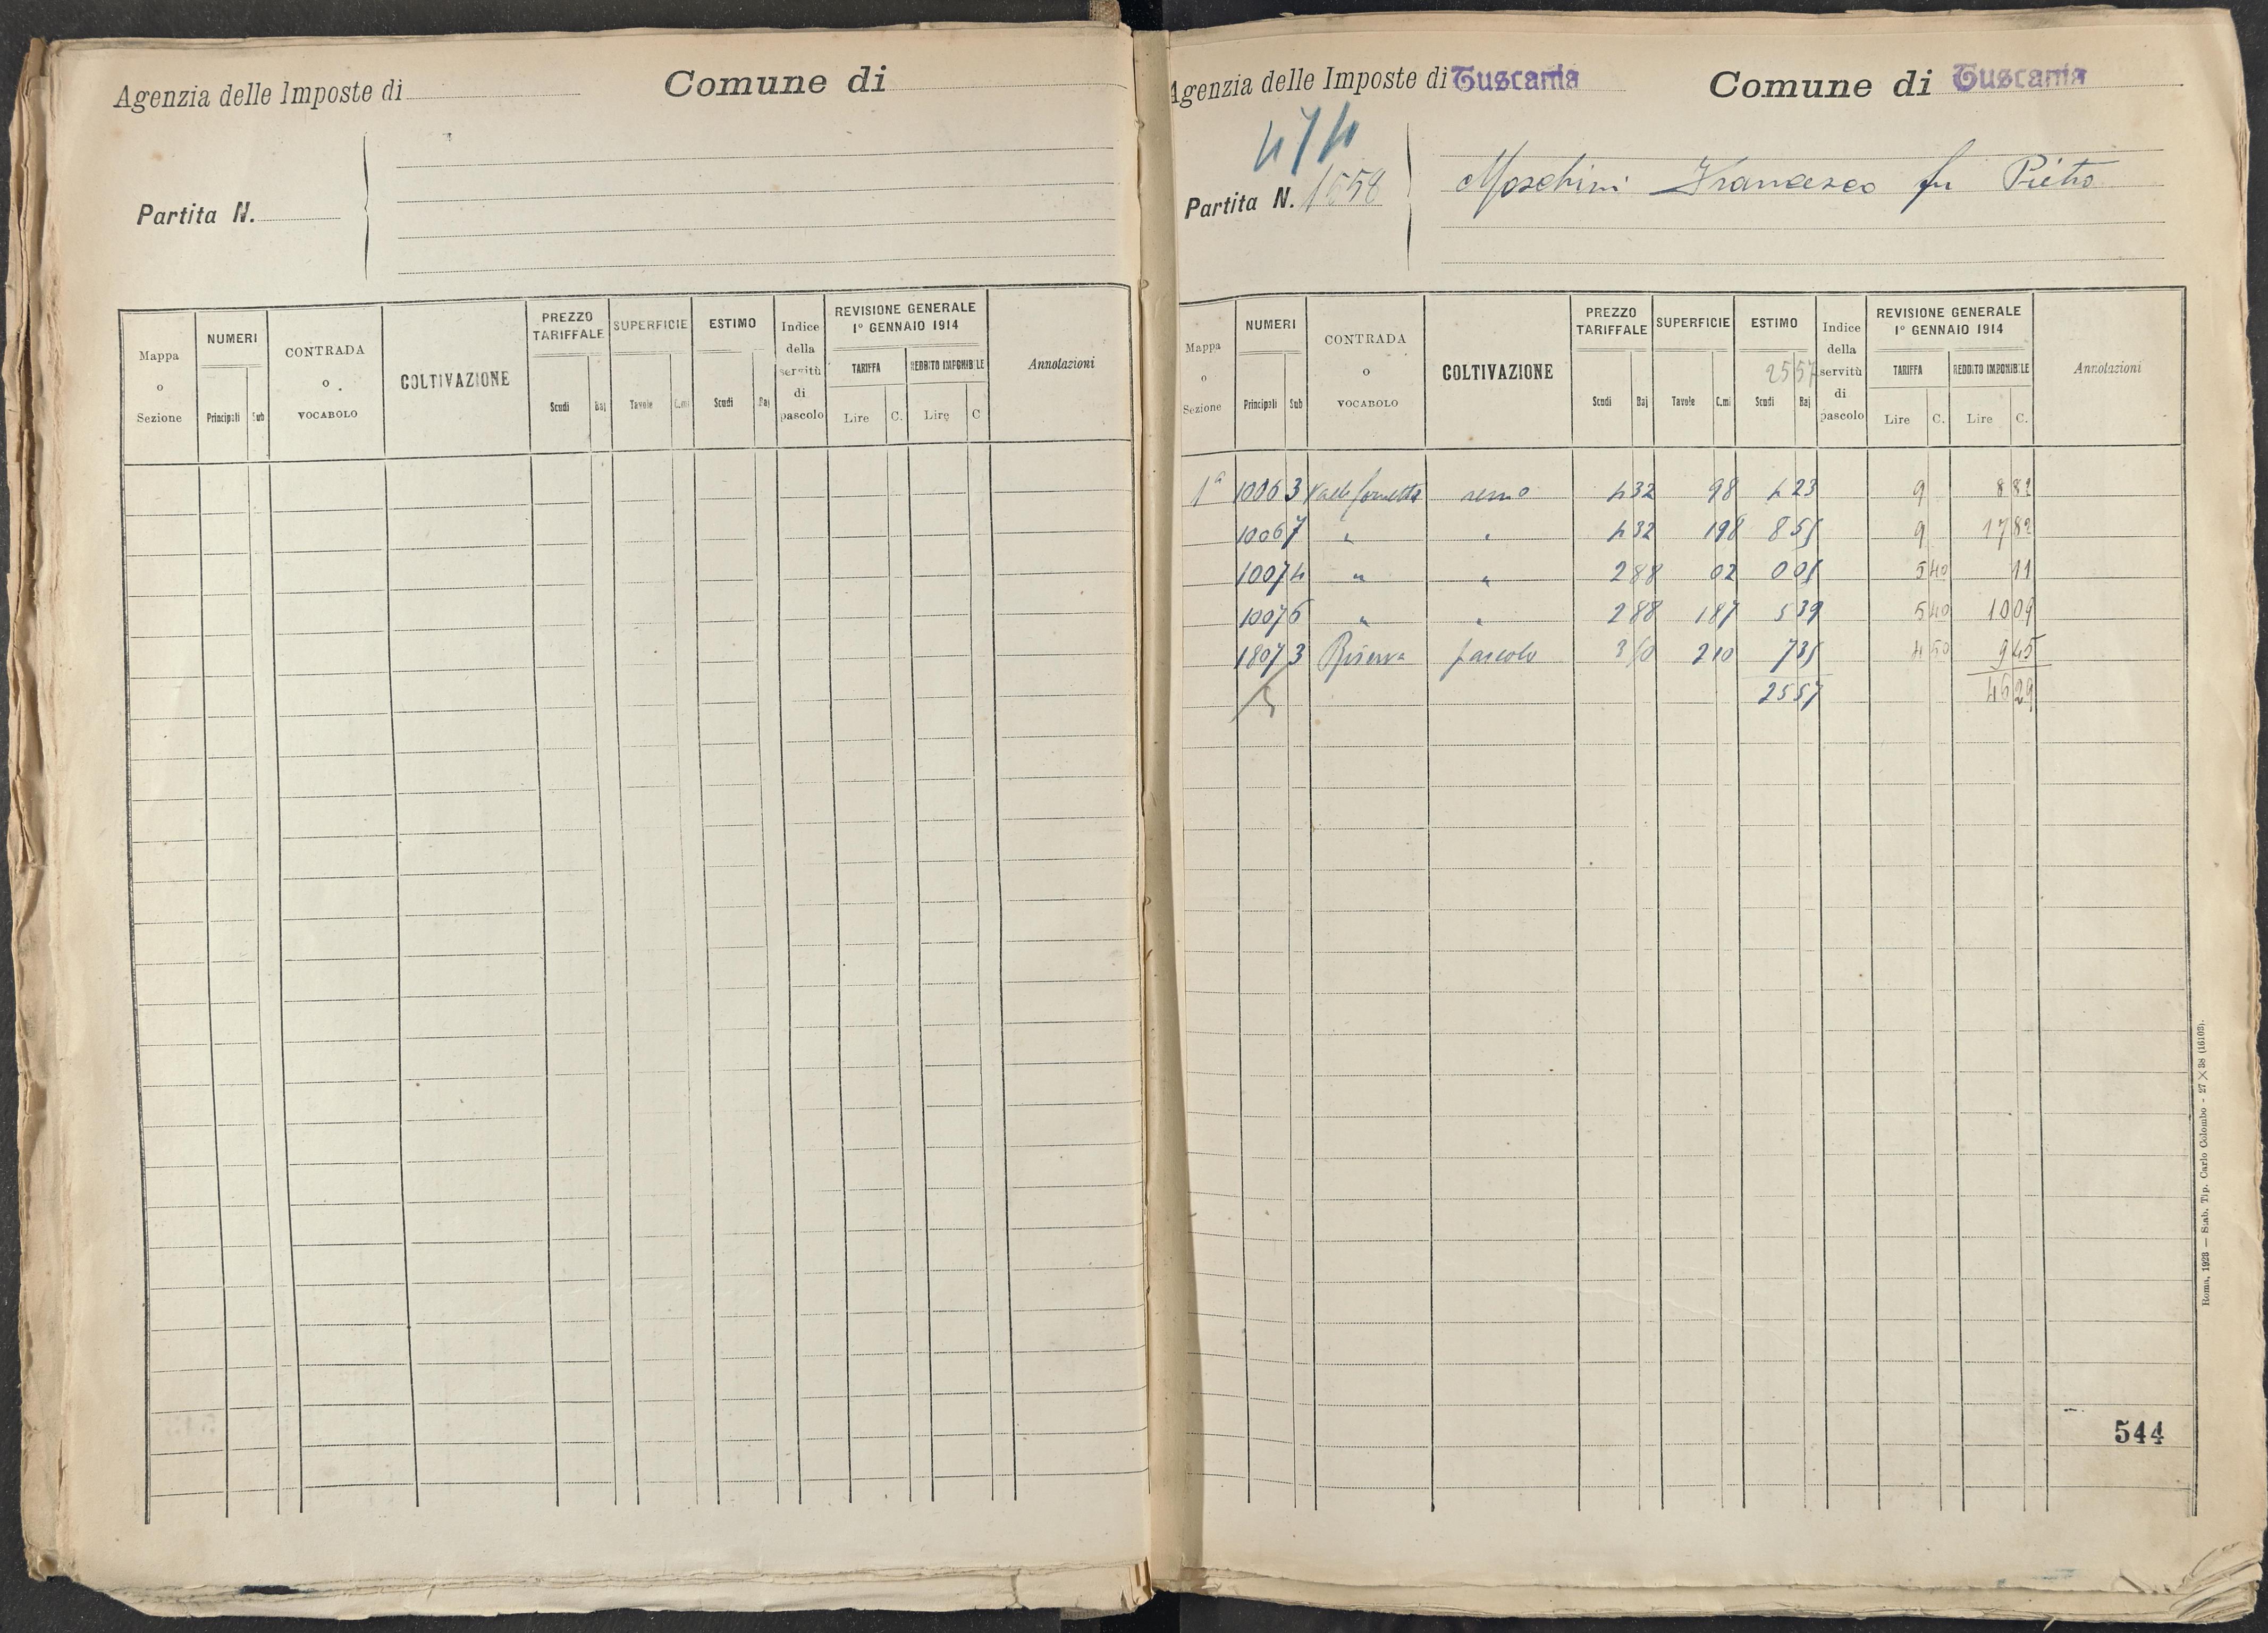 Agenzia delle Imposte di
Comune di
Partita N.
Mappa o Sezione
NUMERI
Principali Sub
CONTRADA o VOCABOLO
COLTIVAZIONE
PREZZO TARIFFALE
Scudi Baj
SUPERFICIE
Tavole C.mi
ESTIMO
Scudi Baj
Indice della servitù di pascolo
REVISIONE GENERALE 1° GENNAIO 1914
TARIFFA
Lire C.
REDDITO IMPONIBILE
Lire C
Annotazioni
Agenzia delle Imposte di Tuscania
Comune di Tuscania
474
Partita N. 1558
Moschini Francesco fu Pietro
Mappa o Sezione
NUMERI
Principali Sub
CONTRADA o VOCABOLO
COLTIVAZIONE
PREZZO TARIFFALE
Scudi Baj
SUPERFICIE
Tavole C.mi
ESTIMO
25 57
Scudi Baj
Indice della servitù di pascolo
REVISIONE GENERALE 1° GENNAIO 1914
TARIFFA
Lire C.
REDDITO IMPONIBILE
Lire C.
Annotazioni
1a 1006 3 Valle semo 4 32 98 4 23 9 8 82
1006 7 " " 4 32 1 98 8 55 9 17 82
1007 4 " " 2 88 02 0 05 5 40 11
1007 6 " " 2 88 1 87 5 39 5 40 10 09
1807 3 Riserva pascolo 3 50 2 10 7 35 4 50 9 45
5 25 57 46 29
544
Roma, 1928 — Stab. Tip. Carlo Colombo - 27 × 38 (16103).